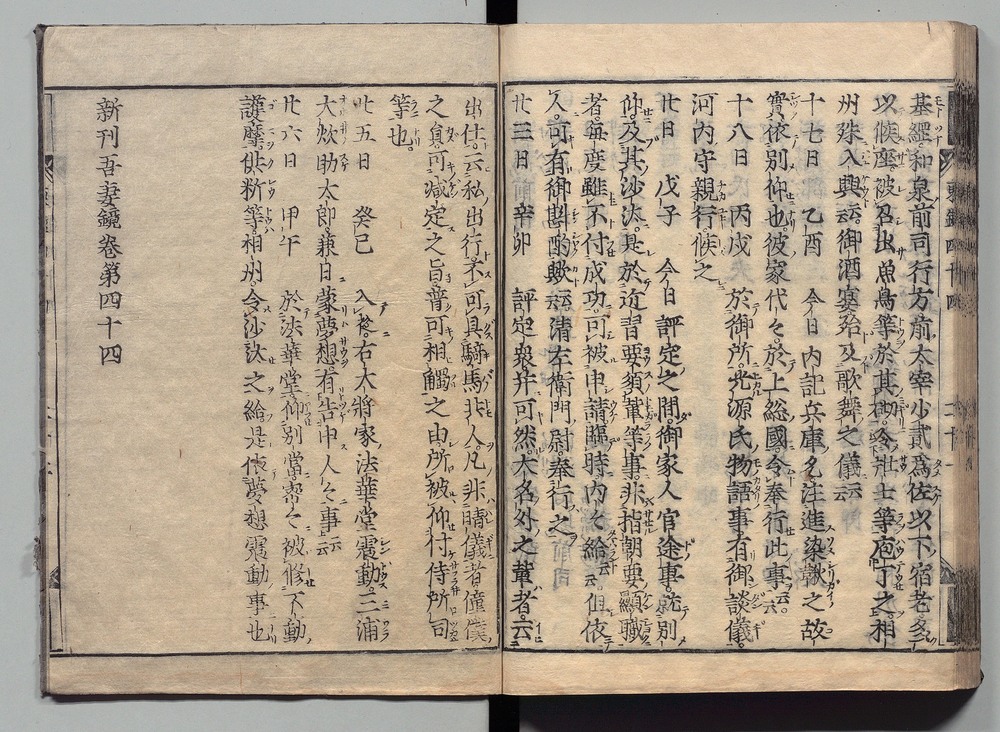 基綱和泉前司行方前太宰少貳爲佐以下宿老多
以候座被召出魚鳥等於其砌令壯士等庖丁之相
州殊入興云云御酒宴殆及歌舞之儀云云
十七日 乙酉 今日内記兵庫允注進染
實依別仰也彼家代々於上総國令奉行此事云云
十八日 丙戌 於御所光源氏物語事有御談儀
河内守親行候之
廿日 戊子 今日評定之間御家人官途事就別
仰及其沙汰是於近習要須輩等事非指朝要顯職
者毎度雖不付成功可被申請臨時内給云云但依
人可有御斟酌歟云云清左衛門尉奉行之
廿三日 辛卯 評定衆并可然大名外之輩者云
出仕云私出行不可具騎馬共人凡非晴儀者僮僕
之員可减定之旨普可相觸之由所被仰付侍所司
等也
廿五日 癸巳 入夜右大將家法華堂震動三浦
大炊助太郎兼日蒙夢想有告申人々事云云
廿六日 甲午 於法華堂仰別當常々被修不動
護摩供料等相州令沙汰之給是依夢想震動事也
新刊吾妻鏡卷第四十四